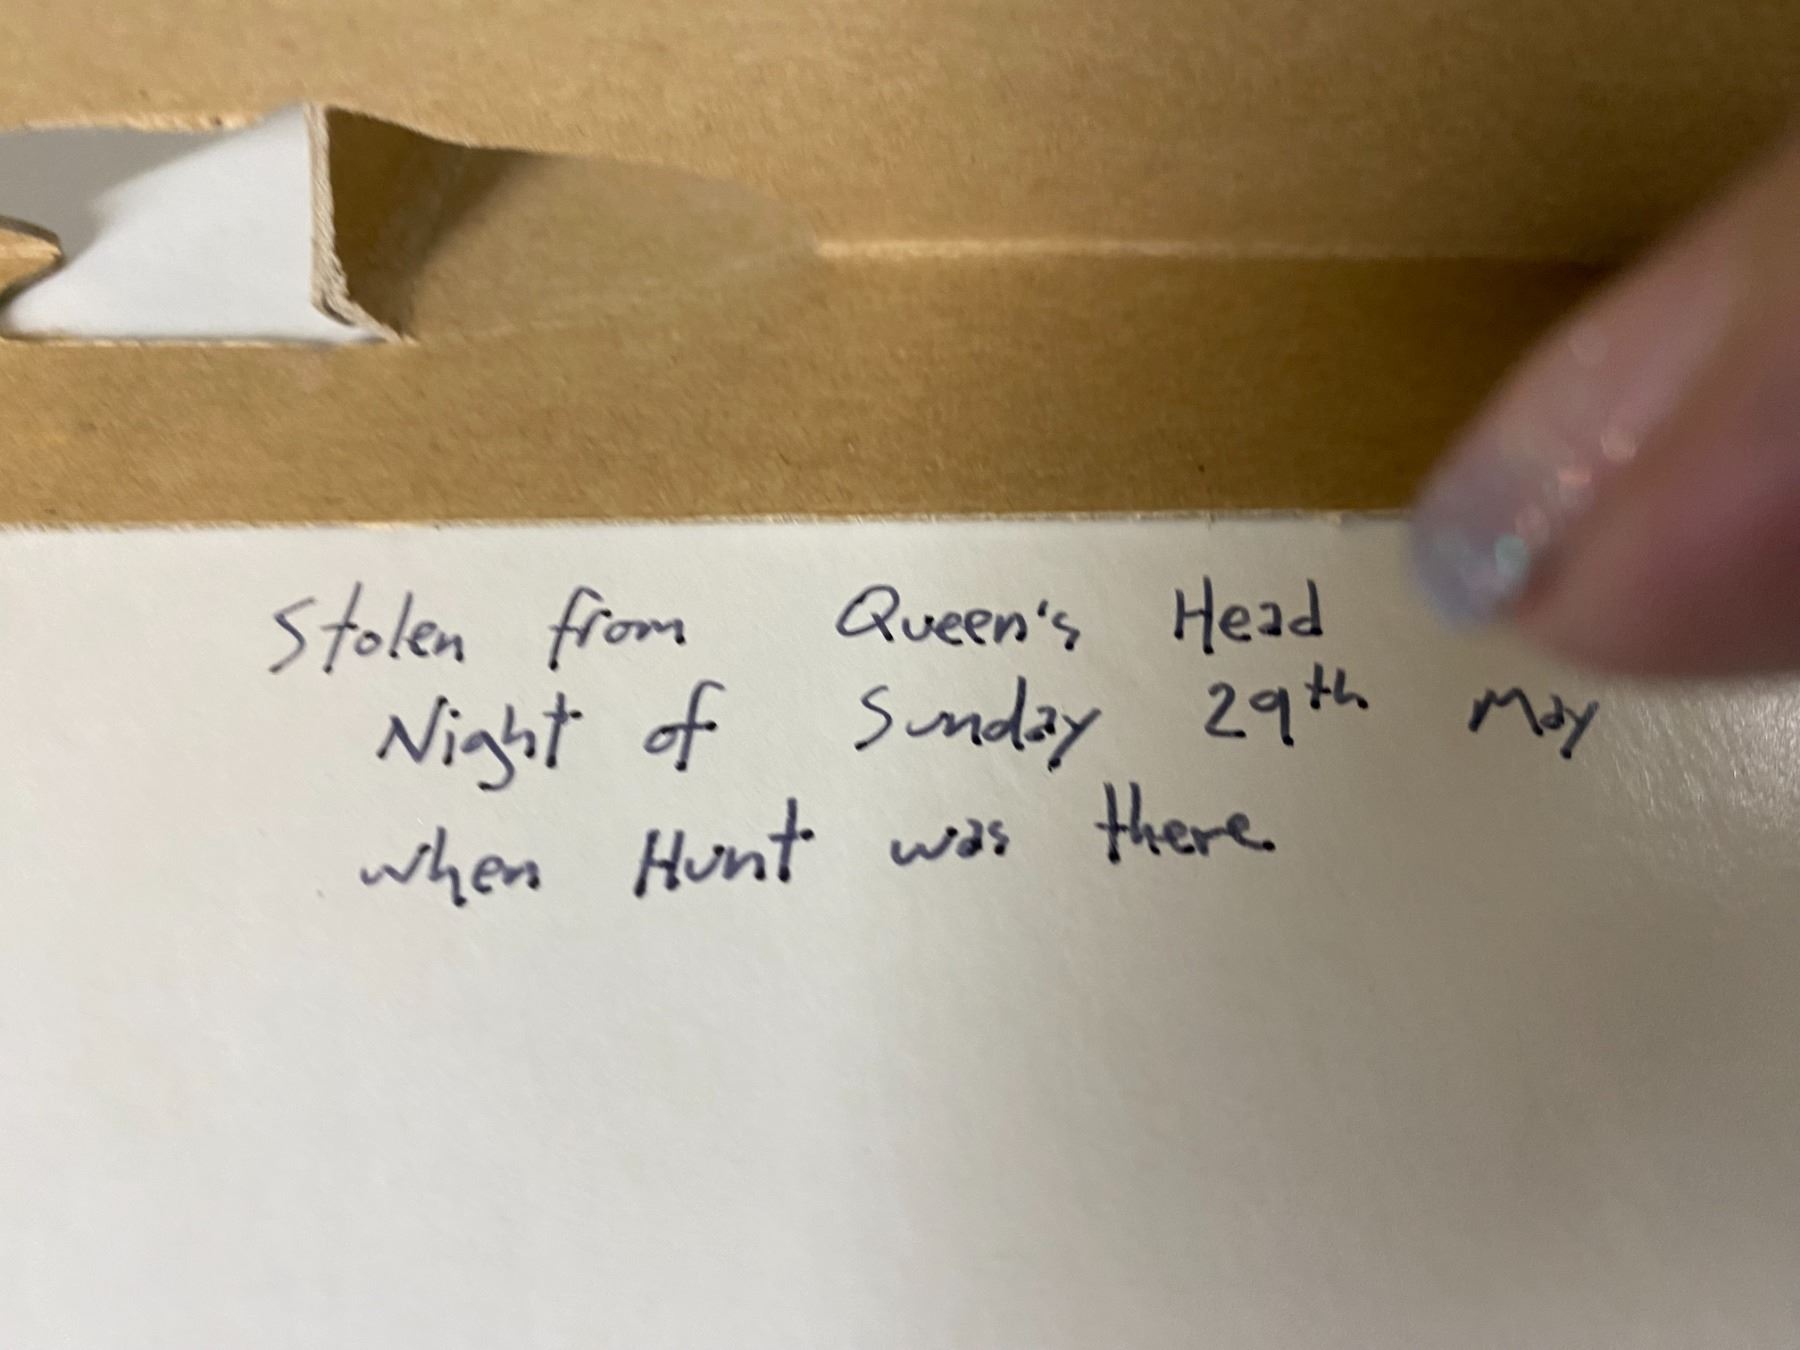 Stolen from Queen's Head
Night of Sunday 29th May
when Hunt was there.